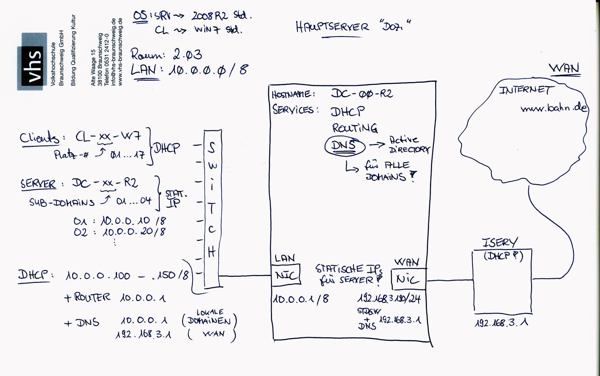 vhs
Volkshochschule
Braunschweig GmbH
Bildung Qualifizierung Kultur
Alte Waage 15
38100 Braunschweig
Telefon 0531 2412-0
info@vhs-braunschweig.de
www.vhs-braunschweig.de
OS: SRV → 2008R2 Std.
CL → WIN7 Std.
Raum: 2.03
LAN: 10.0.0.0/8
HAUPTSERVER "Dozi"
WAN
INTERNET
www.bahn.de
HOSTNAME: DC-00-R2
SERVICES: DHCP
ROUTING
DNS → Active
DIRECTORY
↳ für ALLE
DOMAINS?
Clients: CL-xx-W7
Platz-# 01...17
DHCP
SERVER: DC-xx-R2
SUB-DOMAINS 01...04
STAT.
IP
01: 10.0.0.10/8
02: 10.0.0.20/8
⋮
SWITCH
DHCP: 10.0.0.100 - .150/8
+ ROUTER 10.0.0.1
+ DNS 10.0.0.1 (LOKALE DOMAINEN)
192.168.3.1 (WAN)
LAN
NIC
10.0.0.1/8
STATISCHE IPs
für SERVER?
WAN
NIC
192.168.3.110/24
+
DNS 192.168.3.1
ISERV
(DHCP?)
192.168.3.1